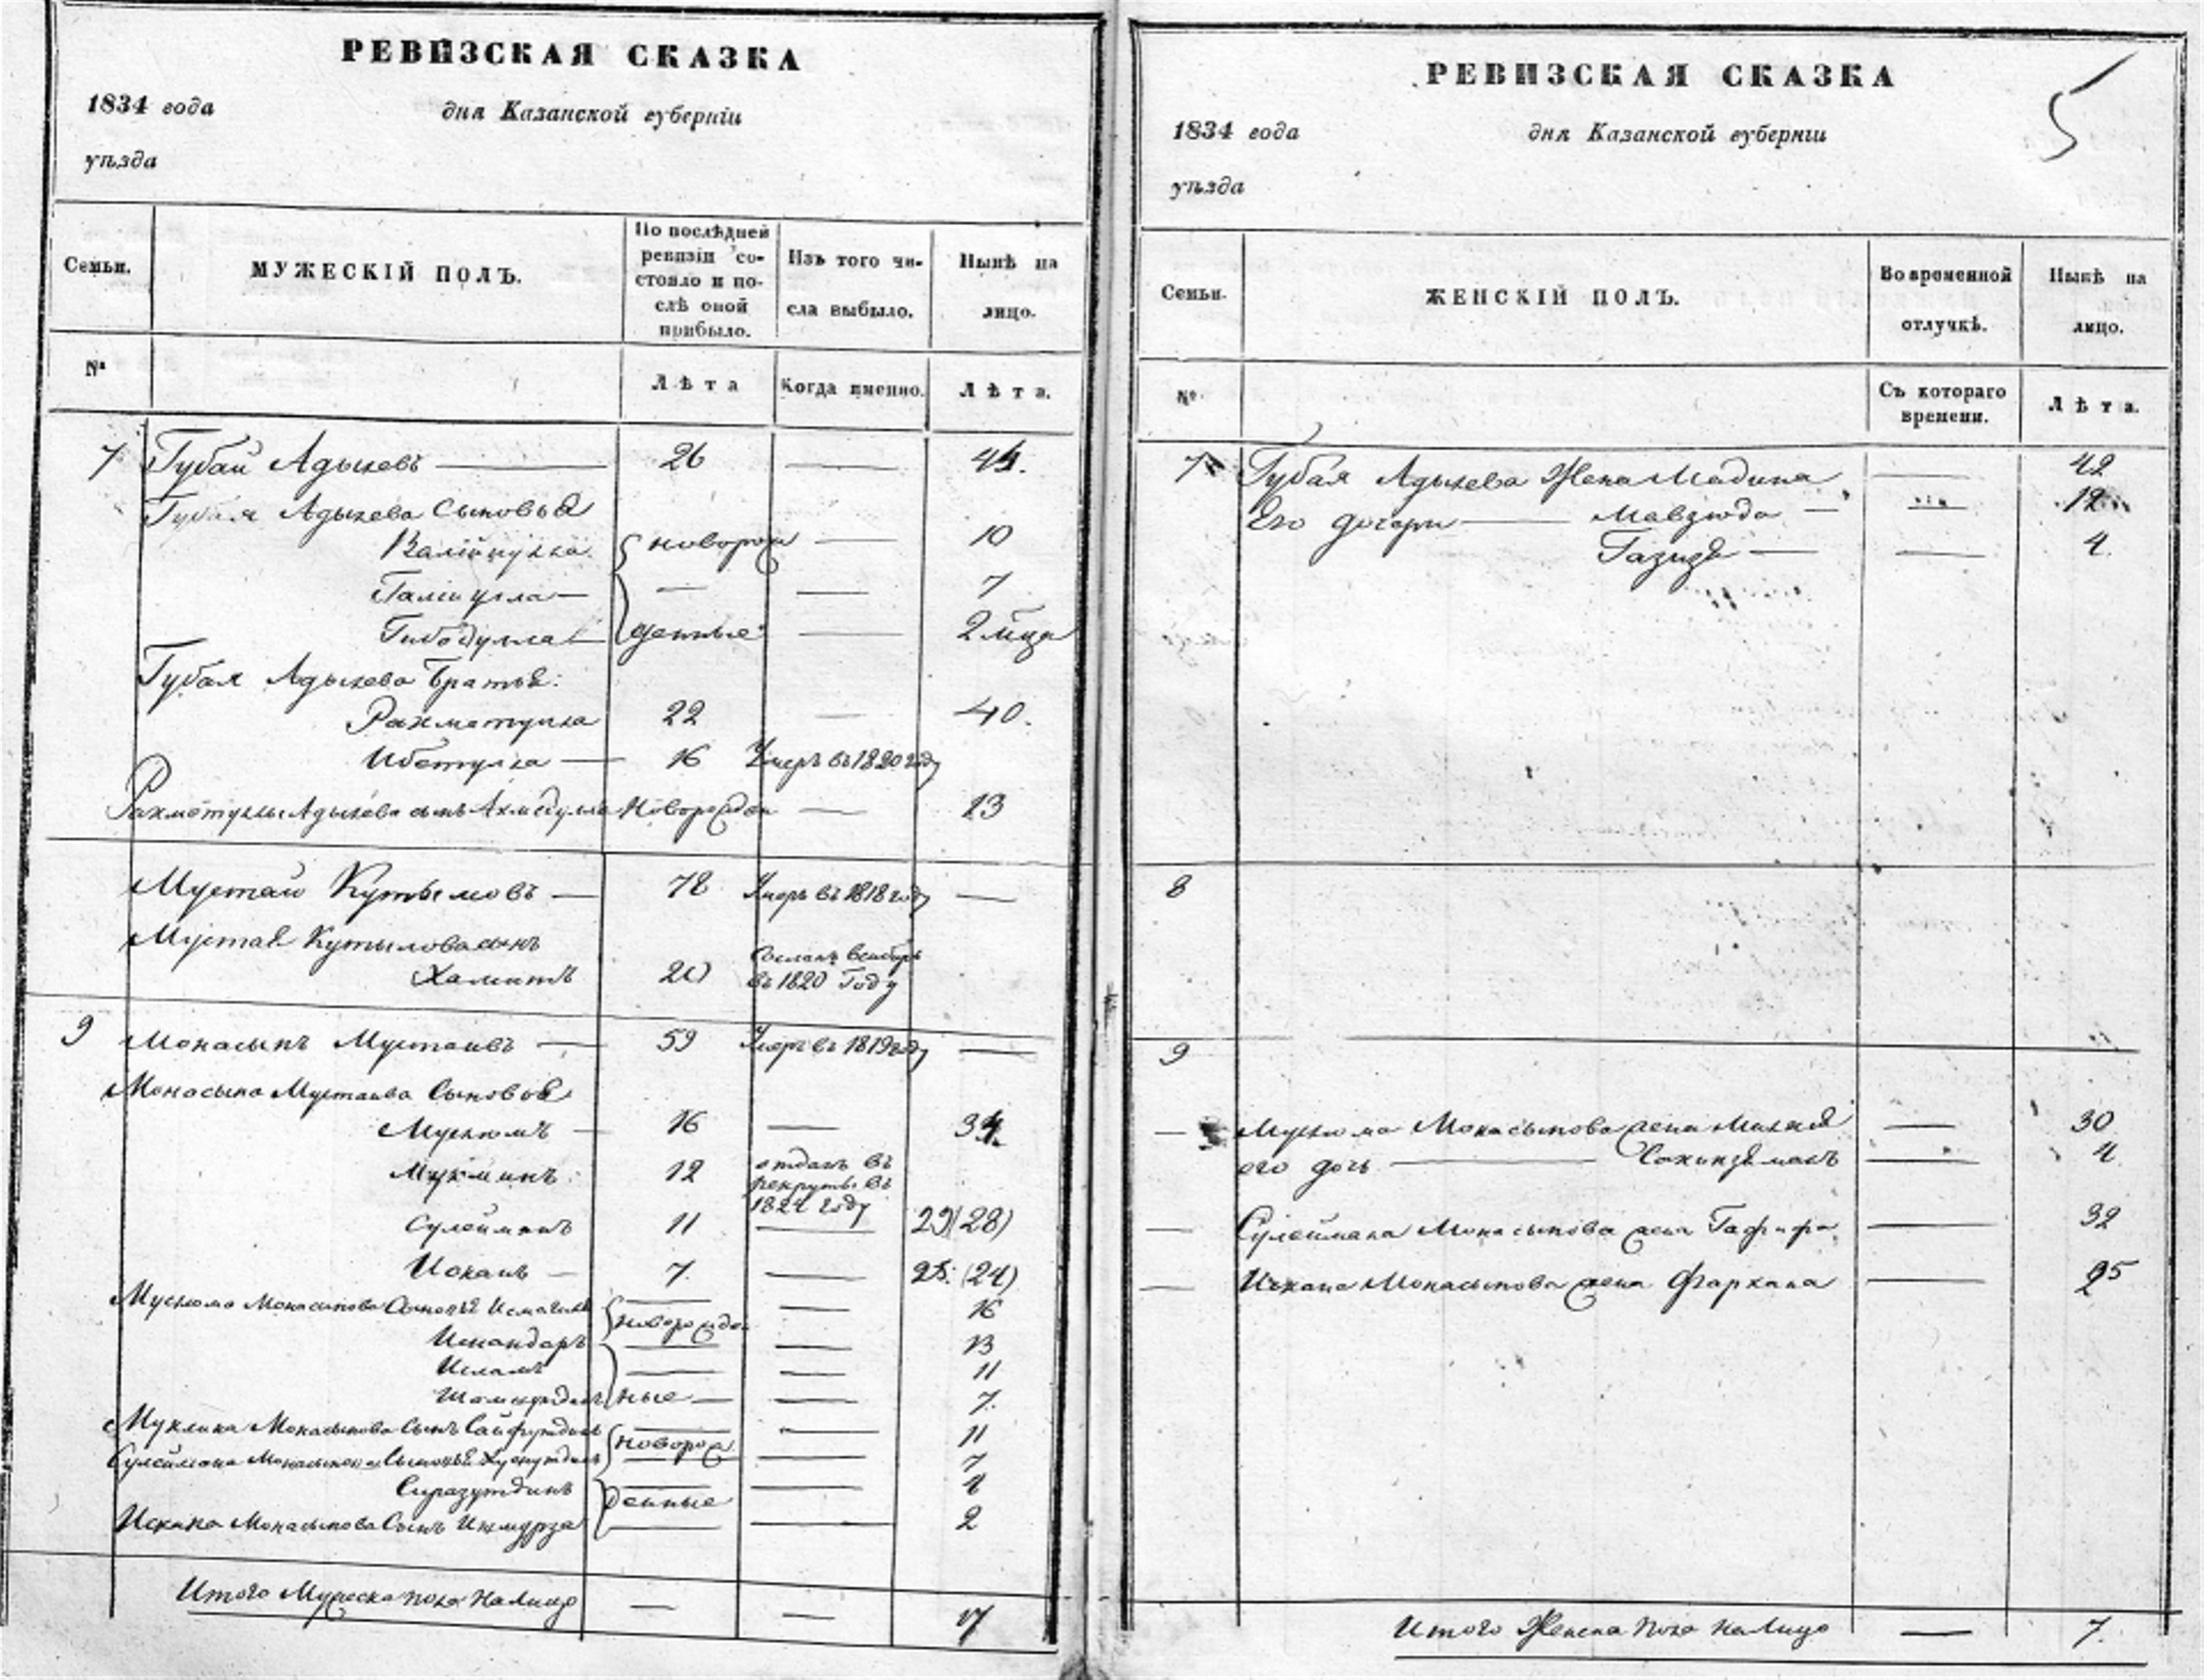 РЕВИЗСКАЯ СКАЗКА
1834 года дня Казанской губерніи
уѣзда
Семьи.
МУЖЕСКІЙ ПОЛЪ.
По послѣдней ревизіи состояло и послѣ оной прибыло.
Изъ того числа выбыло.
Нынѣ на лицо.
№
Лѣта
Когда именно.
Лѣта.
7 Губай Адыкевъ — 26 — 44.
Губая Адыкева Сыновья
Валиулла новорож — 10
Галиулла — — — 7
денные — 2 мца
Губая Адыкева Братья:
Рахматулла 22 — 40.
Ибетулла — 16 Умеръ въ 1820 году
Рахматуллы Адыкева сынъ Ахмедулла Новорожден — 13
Мустай Кутымовъ — 72 Умеръ въ 1818 году —
Мустая Кутымова сынъ
Хамитъ 20 Сосланъ в сибирь
въ 1820 Году
9 Монасыпъ Мустаевъ — 59 Умеръ въ 1819 году —
Монасыпа Мустаева Сыновья
Муслюмъ — 16 — 34.
Мукминъ: 12 отданъ въ
рекруты въ
182 году
Сулейманъ 11 — 29 (28)
Искакъ — 7. — 25: (24)
Муслюма Монасыпова Сыновья Исмагилъ новорожден — 16
Искандаръ — — 13
Исламъ — — 11
ные — — 7.
Мукмина Монасыпова Сынъ Сайфутдинъ — — 11
Сулеймана Монасыпова Сыновья Хуснутдинъ новорож — 7
Сиразутдинъ — — 4
денные
Искака Монасыпова Сынъ — — 2
Итого Мужеска пола на Лицо — — 17
РЕВИЗСКАЯ СКАЗКА
5
1834 года дня Казанской губерніи
уѣзда
Семьи.
ЖЕНСКІЙ ПОЛЪ.
Во временной отлучкѣ.
Нынѣ на лицо.
№
Съ котораго времени.
Лѣта.
7 Губая Адыкева Жена Мадина — 42
Его дочери — Мавзюда — — 12
Газизя — — 4.
8
9
— Муслюма Монасыпова жена — 30
его дочь — — 4
— Сулеймана Монасыпова жена Гафифа — 32
— Искака Монасыпова жена Фархана — 25
Итого Женска пола на Лицо — 7.